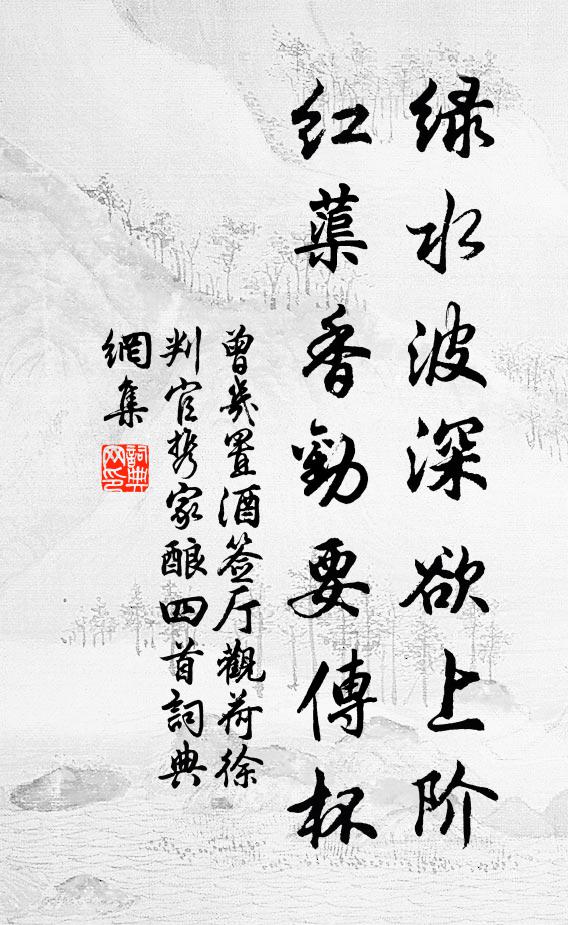 绿水波深欲上阶
红蕖香勤要傳杯
曾幾置酒签厅觀荷徐
判官携家酿四首詞典
網集
詞典网印